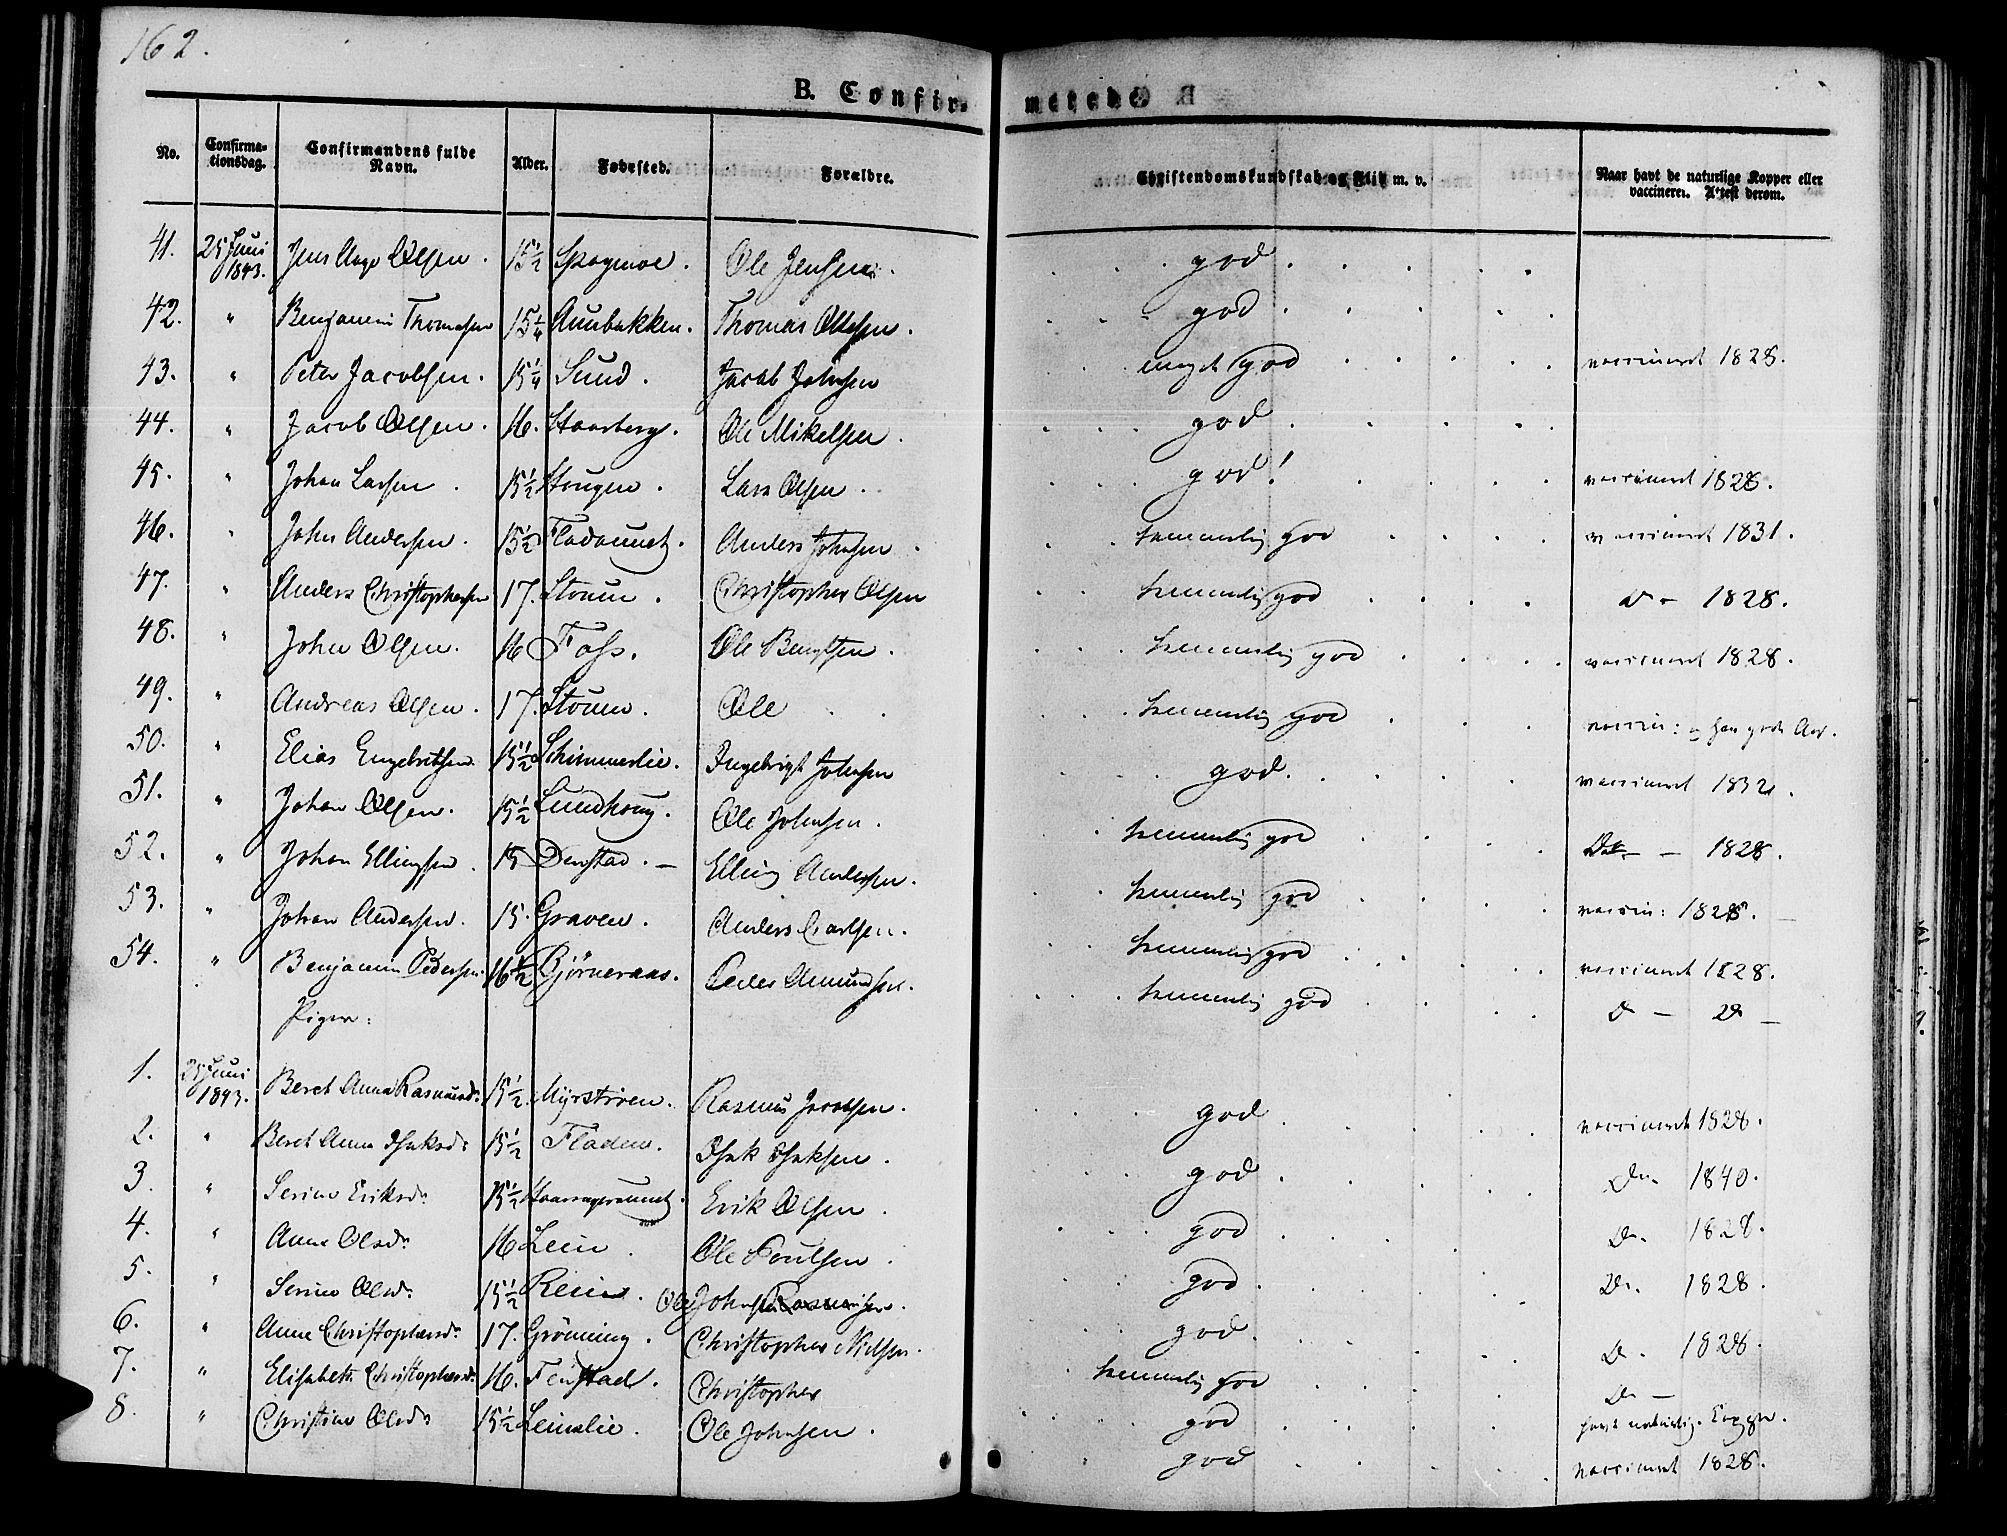 162.
B. Confir-
No.
Confirma-
tionsdag.
Confirmandens fulde
Navn.
Alder.
Fødested.
Forældre.
Christendomskundskab og Flid m. v.
Naar havt de naturlige Kopper eller
vaccineret. Attest derom.
41. 25 Juni 1843. Jens Aage Olsen. 15½ Skogmoe. Ole Jensen. god
42. " Benjamin Thomesen 15¼ Aunbakken. Thomas Olsen. god
43. " Peter Jacobsen. 15¼ Sund. Jacob Johnsen meget god vaccineret 1828.
44. " Jacob Olsen. 16. Staarberg. Ole Mikelsen. god
45. " Johan Larsen. 15½ Hougen. Lars Olsen. god! vaccineret 1828.
46. " John Andersen. 15½ Fladaunet. Anders Johnsen. temmelig god vaccineret 1831.
47. " Anders Christophersen 17. Stouen. Christopher Olsen temmelig god D - 1828.
48. " Johan Olsen. 16 Foss. Ole Bengtsen. temmelig god vaccineret 1828.
49. " Andreas Olsen. 17. Stouen. Ole temmelig god vaccin:
50. " Elias Engebritsen. 15½ Schimmerlie. Ingebrigt Johnsen god. vaccineret 1832.
51. " Johan Olsen. 15½ Lundhoug. Ole Johnsen. temmelig god Do - 1828.
52. " Johan Ellingsen. 15 Denstad. - Elling Andersen. temmelig god vaccin: 1828. -
53. " Johan Andersen. 15. Graven. Anders Carlsen. temmelig god vaccineret 1828.
54. " Benjamin Pedersen. 16½ Bjørneraas. Peder Amundsen. temmelig god D - D -
Piger:
1. 25 Juni 1843. Beret Anna Rasmusd. 15½. Myrstøen. Rasmus Jacobsen. god vaccineret 1828.
2. " Beret Anna Isaksd. 15½ Fladen. Isak Isaksen. god Do. 1840.
3. " Serine Eriksd. 15½ Erik Olsen. god D. 1828.
4. " Anne Olsd. 16 Lein. Ole Poulsen. god. D. 1828.
5. " Serine Olsd. 15½ Rein. Ole Johnsen god. D. 1828.
6. " Anne Christophersd. 17. Grønning. Christopher Nielsen. temmelig god D. -
7. " Elisabeth Christophersd. 16. Fenstad. Christopher god havt naturlig. Kopper.
8. " Christine Olsd. 15½ Leinslie. Ole Johnsen. god vaccineret 1828.